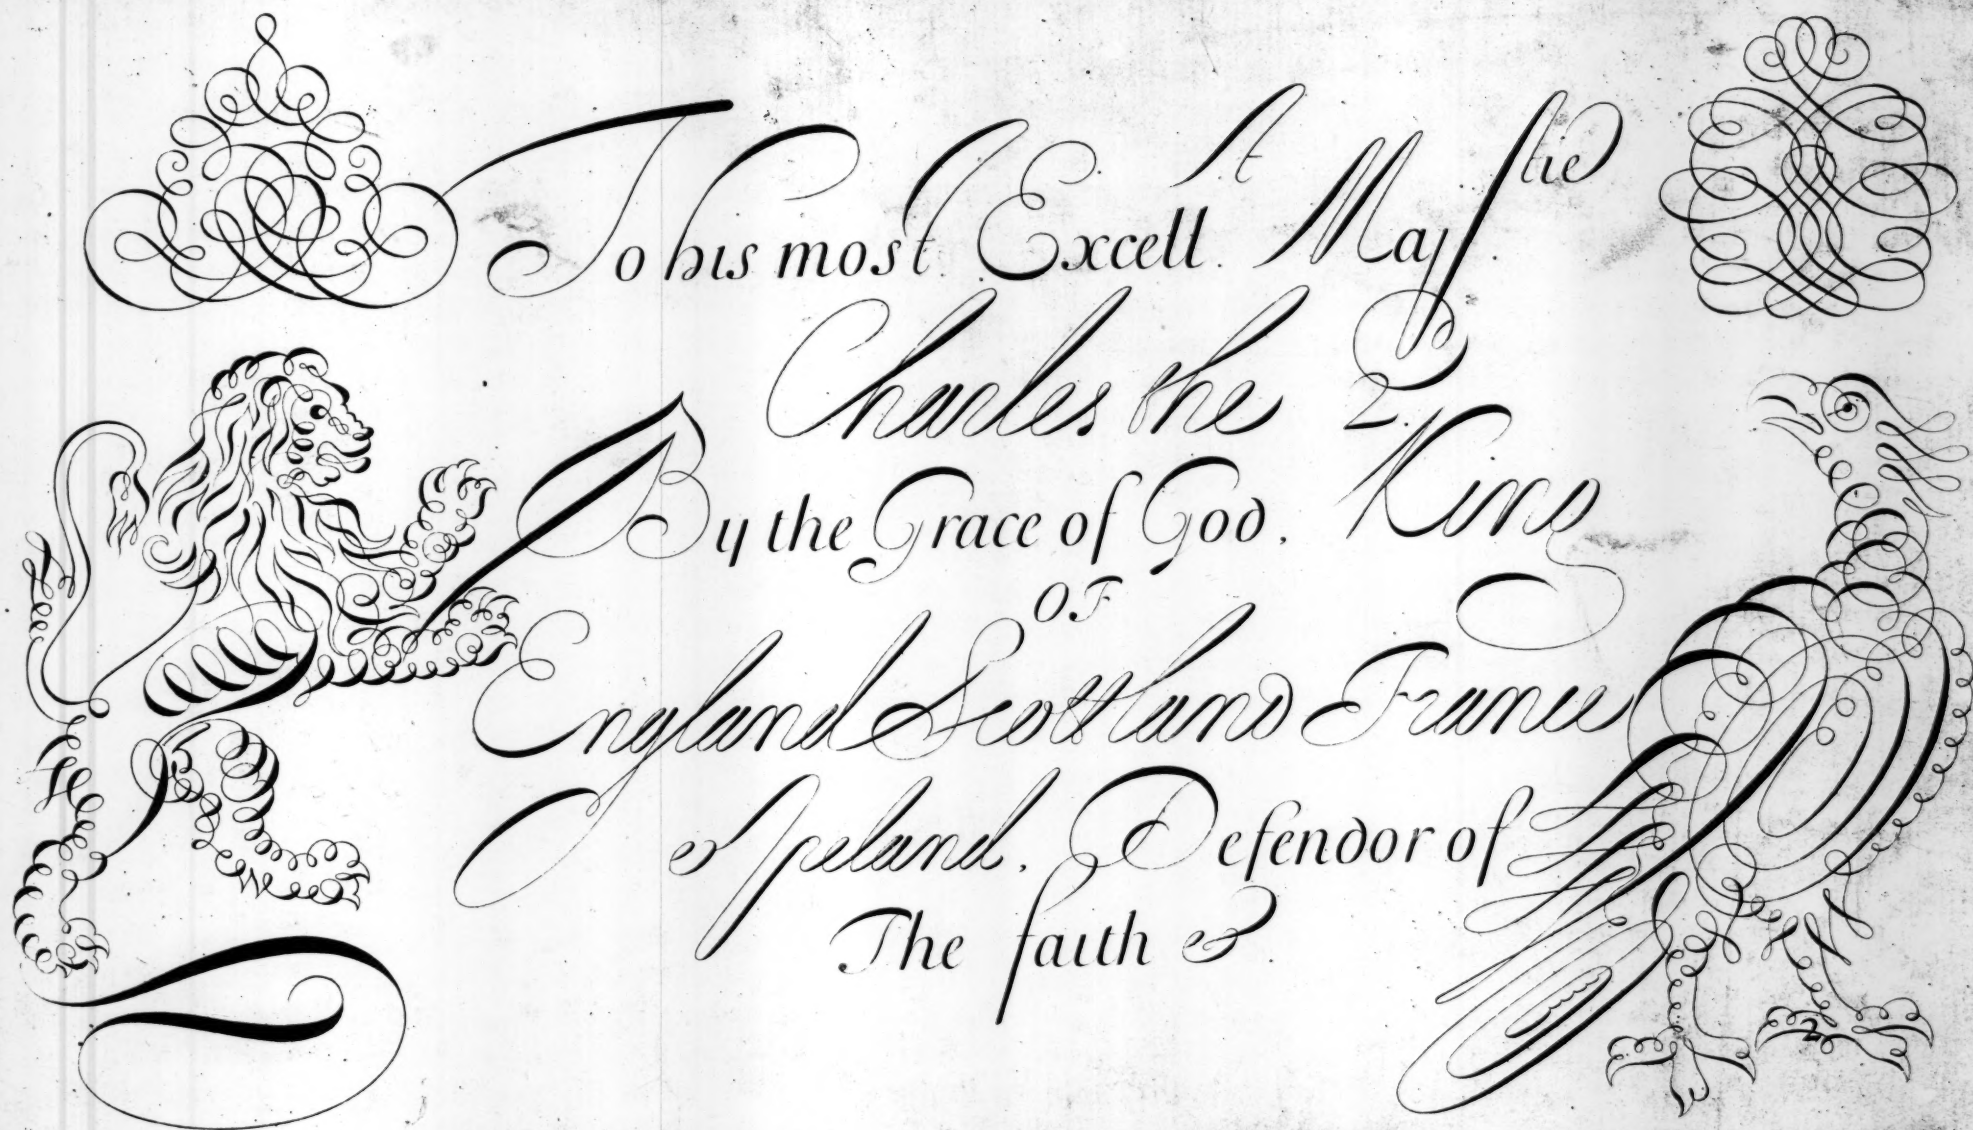 To his most Excell.t Majstie
Charles the 2.
By the Grace of God, King
OF
England Scottland France
& Ireland, Defendor of
The faith &.
2